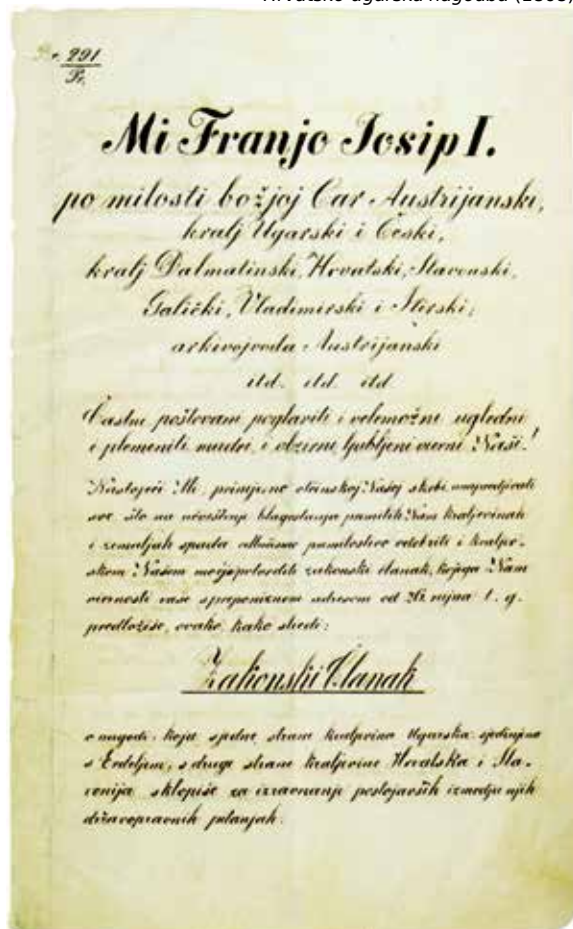 Hrvatsko-ugarska nagodba (1868)
291
Pr.
Mi Franjo Josip I.
po milosti božjoj Car Austrijanski,
kralj Ugarski i Česki,
kralj Dalmatinski, Hrvatski, Slavonski,
Galički, Vladimirski i Ilirski;
arkivojvoda Austrijanski
itd. itd. itd
Častni poštovani poglaviti i velemožni ugledni
i plemeniti mudri i obzirni ljubljeni vierni Naši!
Nastojeći Mi, primjerno otčinskoj Našoj skrbi unapredjivati
sve, što na učvršćenje blagostanja pamilih Nam kraljevinah
i zemaljah spada odlučismo premilostivo odobriti i kraljev-
skom Našom potvrditi zakonski članak, kojega Nam
viernosti vaše spreponiznom adresom od rujna t. g.
predložiše, ovako kako sledi:
Zakonski Članak
o nagodi, koju s jedne strane kraljevina Ugarska, sjedinjena
s Erdeljem, s druge strane kraljevine Hrvatska i Sla-
vonija sklopiše za izravnanje postojavših izmedju njih
državopravnih pitanjah.